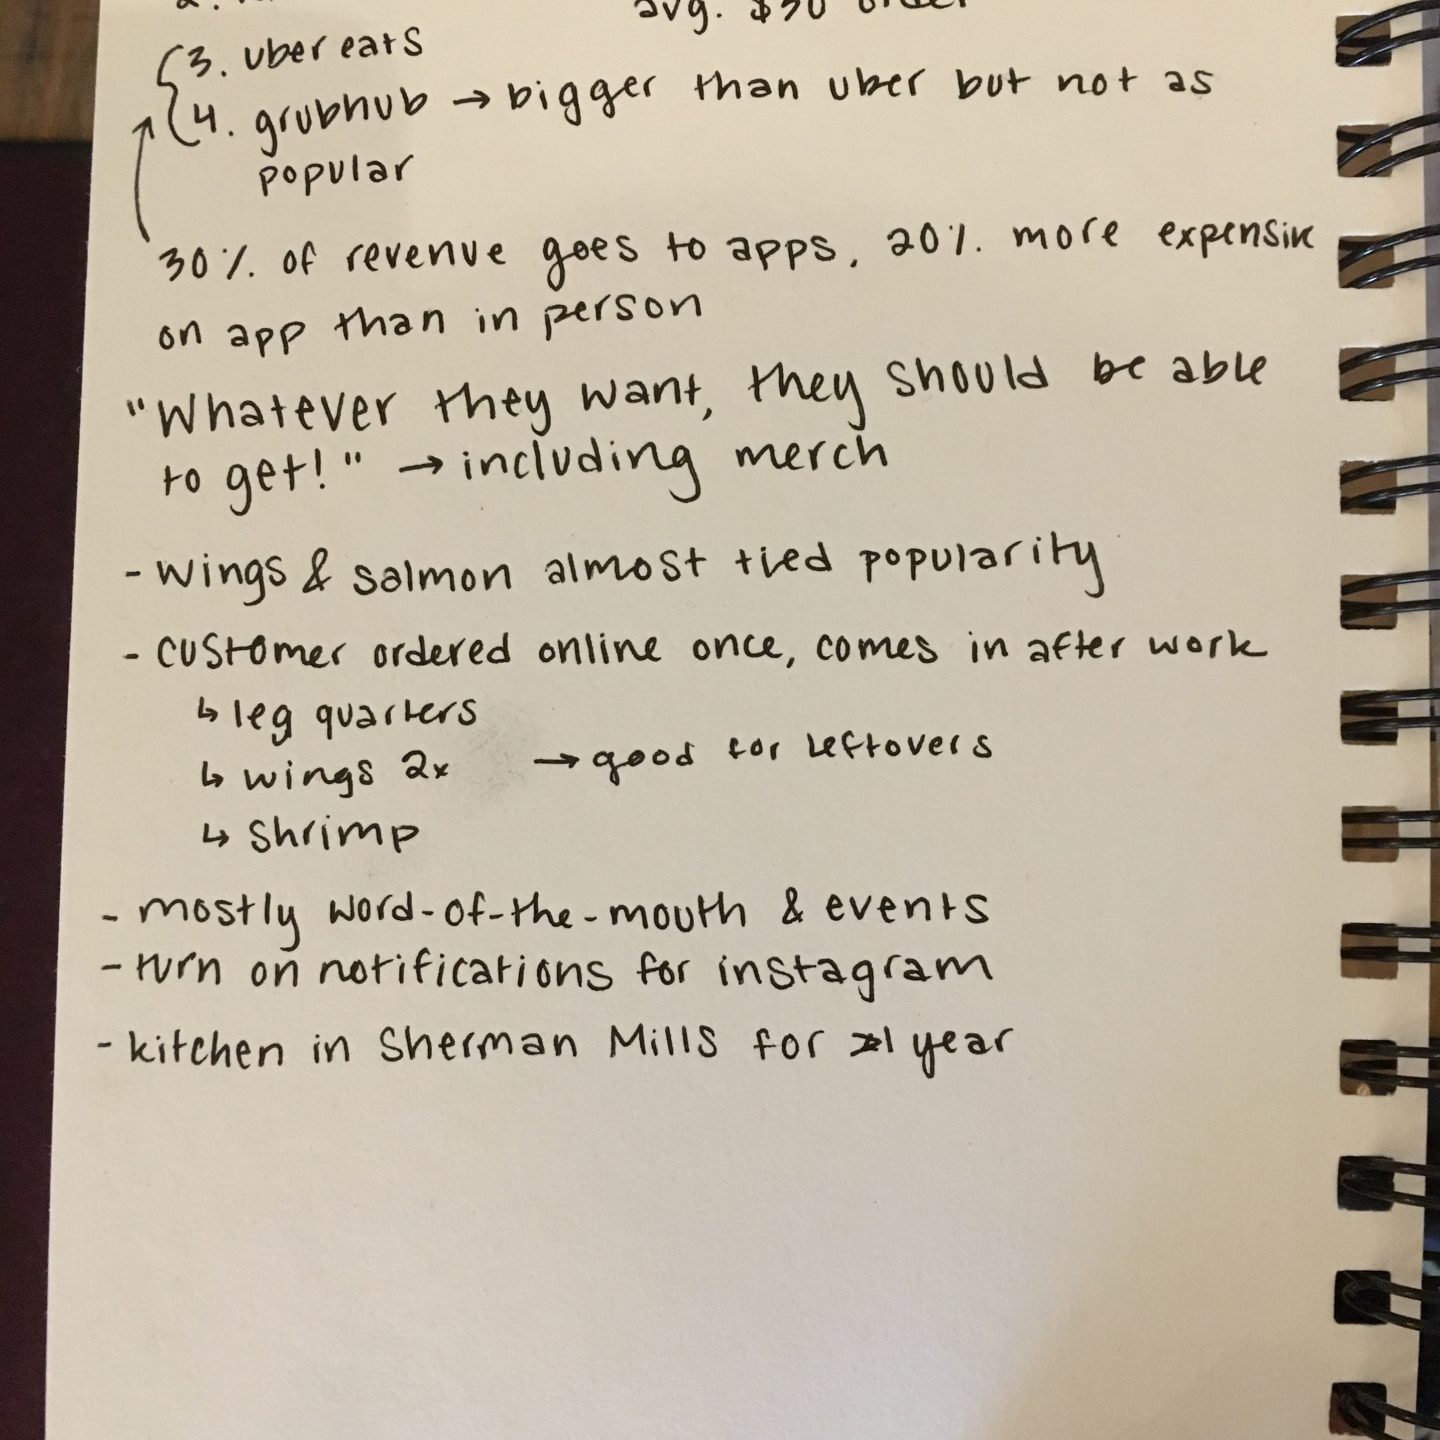 2.
avg. $30 order
3. uber eats
4. grubhub → bigger than uber but not as
popular
30% of revenue goes to apps, 20% more expensive
on app than in person
"Whatever they want, they should be able
to get!" → including merch
- wings & salmon almost tied popularity
- customer ordered online once, comes in after work
↳ leg quarters
↳ wings 2x → good for leftovers
↳ shrimp
- mostly word-of-the-mouth & events
- turn on notifications for instagram
- kitchen in Sherman Mills for >1 year